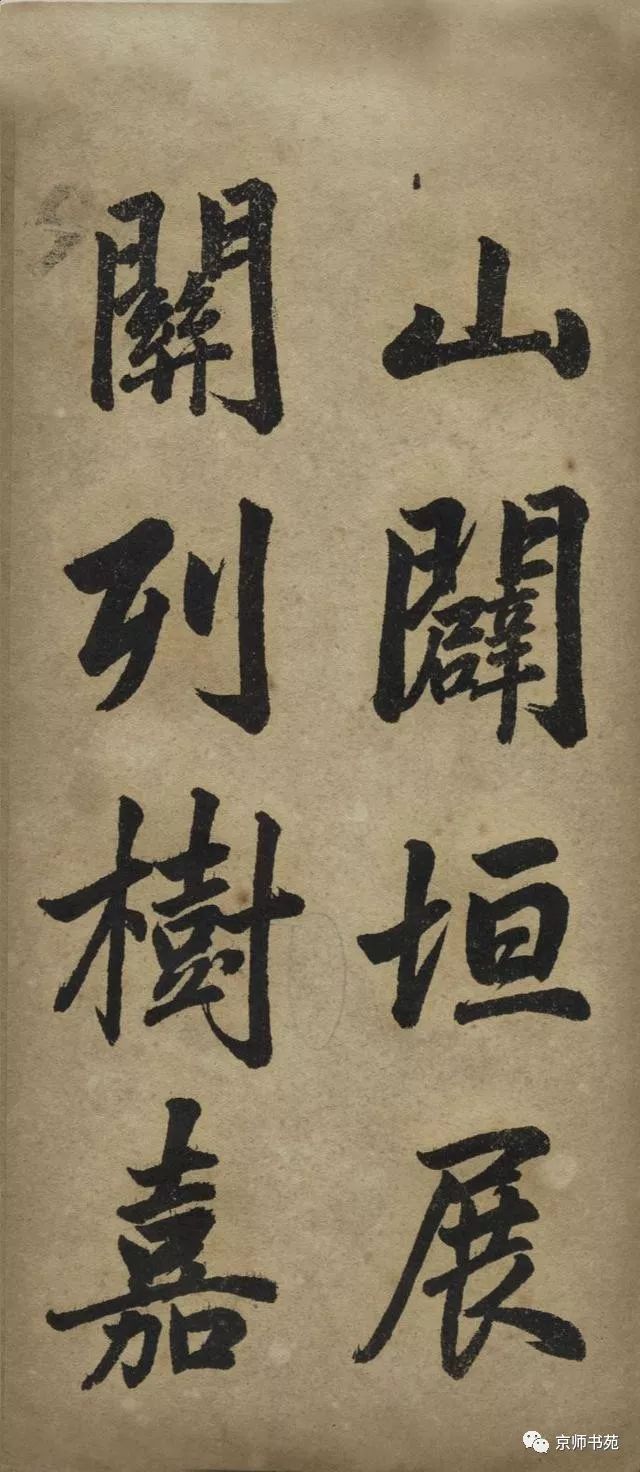 山闢垣展
關列樹嘉
京师书苑